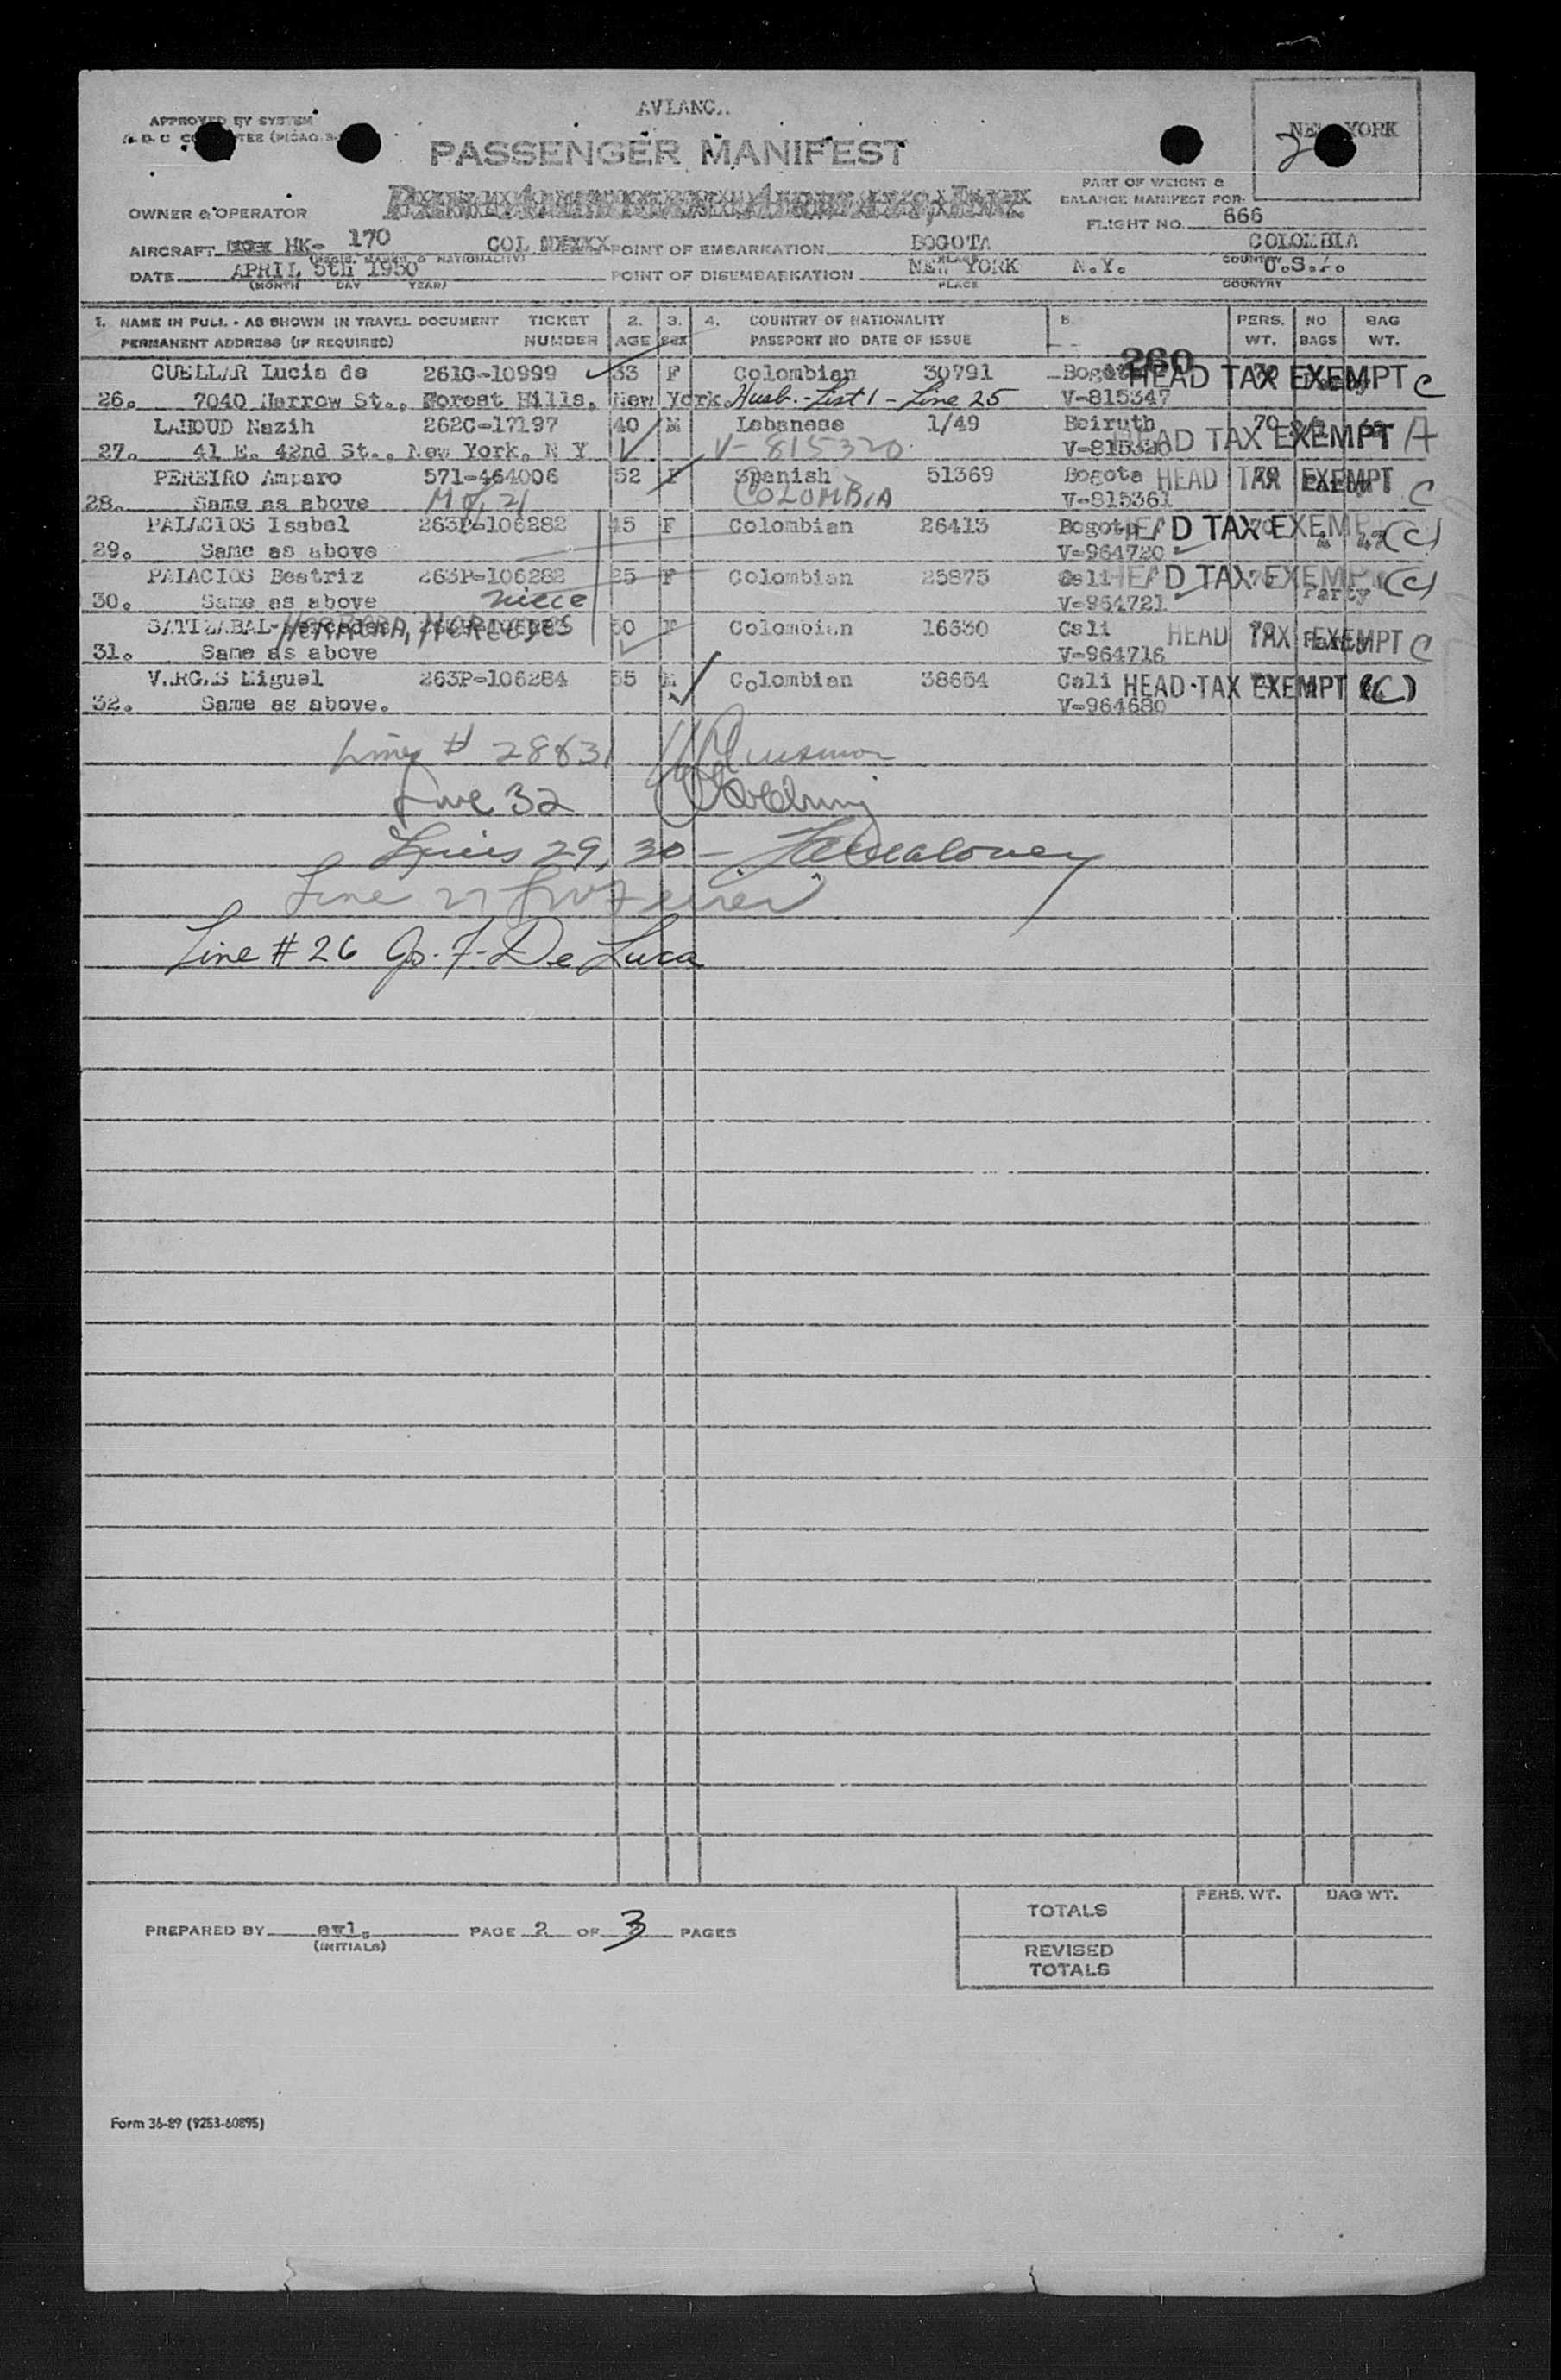 AVIANC..
APPROVED BY SYSTEM
NEW YORK
2
PASSENGER MANIFEST
PART OF WEIGHT &
BALANCE MANIFEST FOR:
OWNER & OPERATOR
FLIGHT NO. 666
AIRCRAFT HK- 170 COL POINT OF EMBARKATION BOGOTA COLOMBIA
DATE APRIL 5th 1950 POINT OF DISEMBARKATION NEW YORK N.Y. U.S.A.
(MONTH DAY YEAR) PLACE COUNTRY
1. NAME IN FULL - AS SHOWN IN TRAVEL DOCUMENT TICKET 2. 3. 4. COUNTRY OF NATIONALITY 5. PERS. NO BAG
PERMANENT ADDRESS (IF REQUIRED) NUMBER AGE SEX PASSPORT NO DATE OF ISSUE WT. BAGS WT.
260
CUELLAR Lucia de 261C-10999 33 F Colombian 30791 Bogota HEAD TAX EXEMPT C
26. 7040 Narrow St., Forest Hills, New York. Husb.- List 1 - Line 25 V-815347
LAHOUD Nazih 262C-17197 40 M Lebanese 1/49 Beiruth 70 HEAD TAX EXEMPT A
27. 41 E. 42nd St., New York, N Y V-815320 V-815320
PEREIRO Amparo 571-464006 52 F Spanish 51369 Bogota HEAD TAX EXEMPT C
28. Same as above COLOMBIA V-815361
PALACIOS Isabel 263P-106282 45 F Colombian 26413 Bogota HEAD TAX EXEMPT (C)
29. Same as above V-964720
PALACIOS Beatriz 263P-106282 25 F Colombian 25875 Cali HEAD TAX EXEMPT (C)
30. Same as above niece V-964721 Party
SATIZABAL- HERRERA, MERCEDES 50 F Colombian 16330 Cali HEAD TAX EXEMPT C
31. Same as above V-964716
VARGAS Miguel 263P-106284 55 M Colombian 38654 Cali HEAD TAX EXEMPT (C)
32. Same as above. V-964680
Lines # 28 & 31
Line 32
Lines 29, 30 -
Line 27
Line # 26 Jo. F. De Luca
PREPARED BY ewl. PAGE 2 OF 3 PAGES
(INITIALS)
PERS. WT. BAG WT.
TOTALS
REVISED
TOTALS
Form 36-89 (9253-60895)